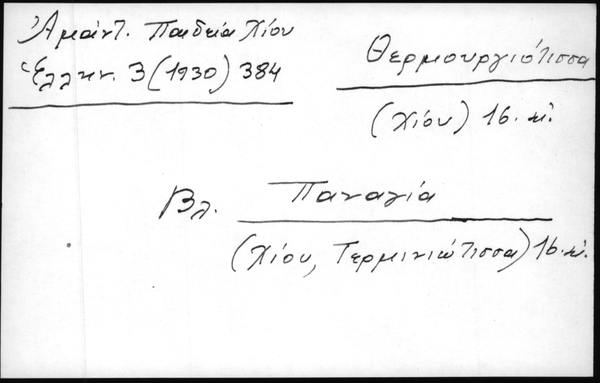 Ἀμάντ. Παιδεία Χίου
Ἑλλην. 3 (1930) 384
Θερμουργιότισσα
(Χίου) 16. αἰ.
Βλ. Παναγία
(Χίου, Τερμινιώτισσα) 16. αἰ.